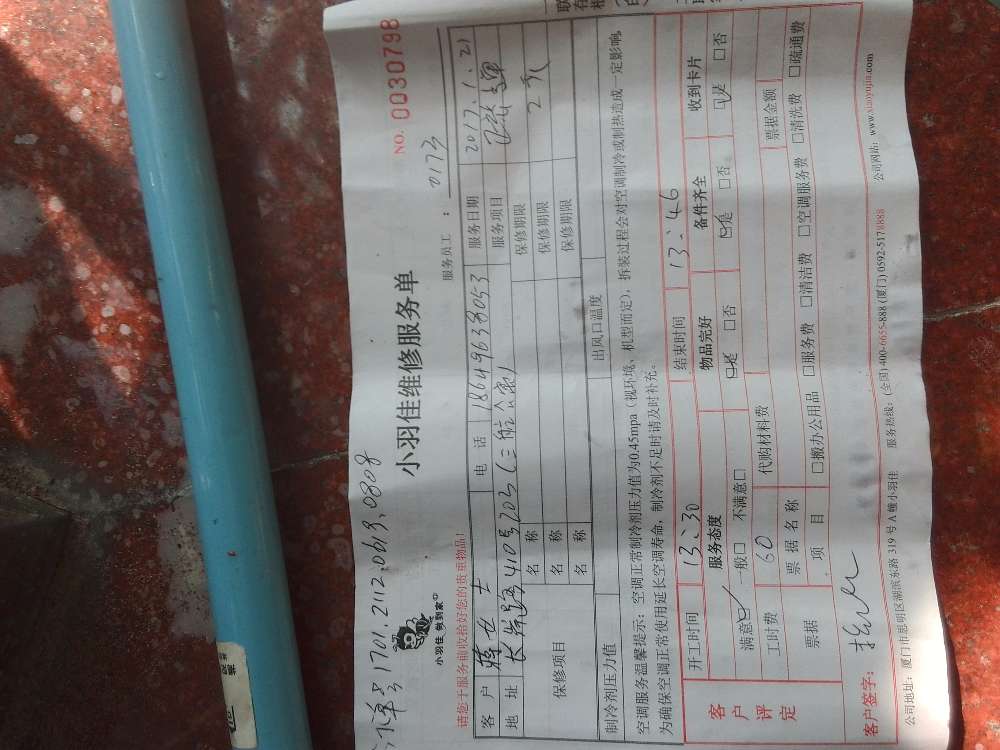 1701.2112.0619.0808
小羽佳 做到家
小羽佳维修服务单
NO. 00307798
请您于服务前收拾好您的贵重物品!
服务员工: 0173
客户 女士 电话 18649638053 服务日期 2017.1.21
地址 长岸路410号203(三航公寓) 服务项目
保修项目 名称 保修期限
名称 保修期限
名称 保修期限
制冷剂压力值 出风口温度
空调服务温馨提示:空调正常制冷剂压力值为0.45mpa(视环境、机型而定),拆装过程会对空调制冷或制热造成一定影响,
为确保空调正常使用延长空调寿命,制冷剂不足时请及时补充。
客户评定 开工时间 13:30 结束时间 13:46
服务态度 物品完好 备件齐全 收到卡片
满意☑ 一般□ 不满意□ ☑是 □否 ☑是 □否 ☑是 □否
工时费 60 代购材料费 票据金额
票据 票据名称
项目 □搬办公用品 □服务费 □清洁费 □空调服务费 □清洗费 □疏通费
客户签字:
公司地址:厦门市思明区湖滨东路319号A幢小羽佳 服务热线:(全国)400-6655-888 (厦门)0592-5178888 公司网站:www.xiaoyujia.com